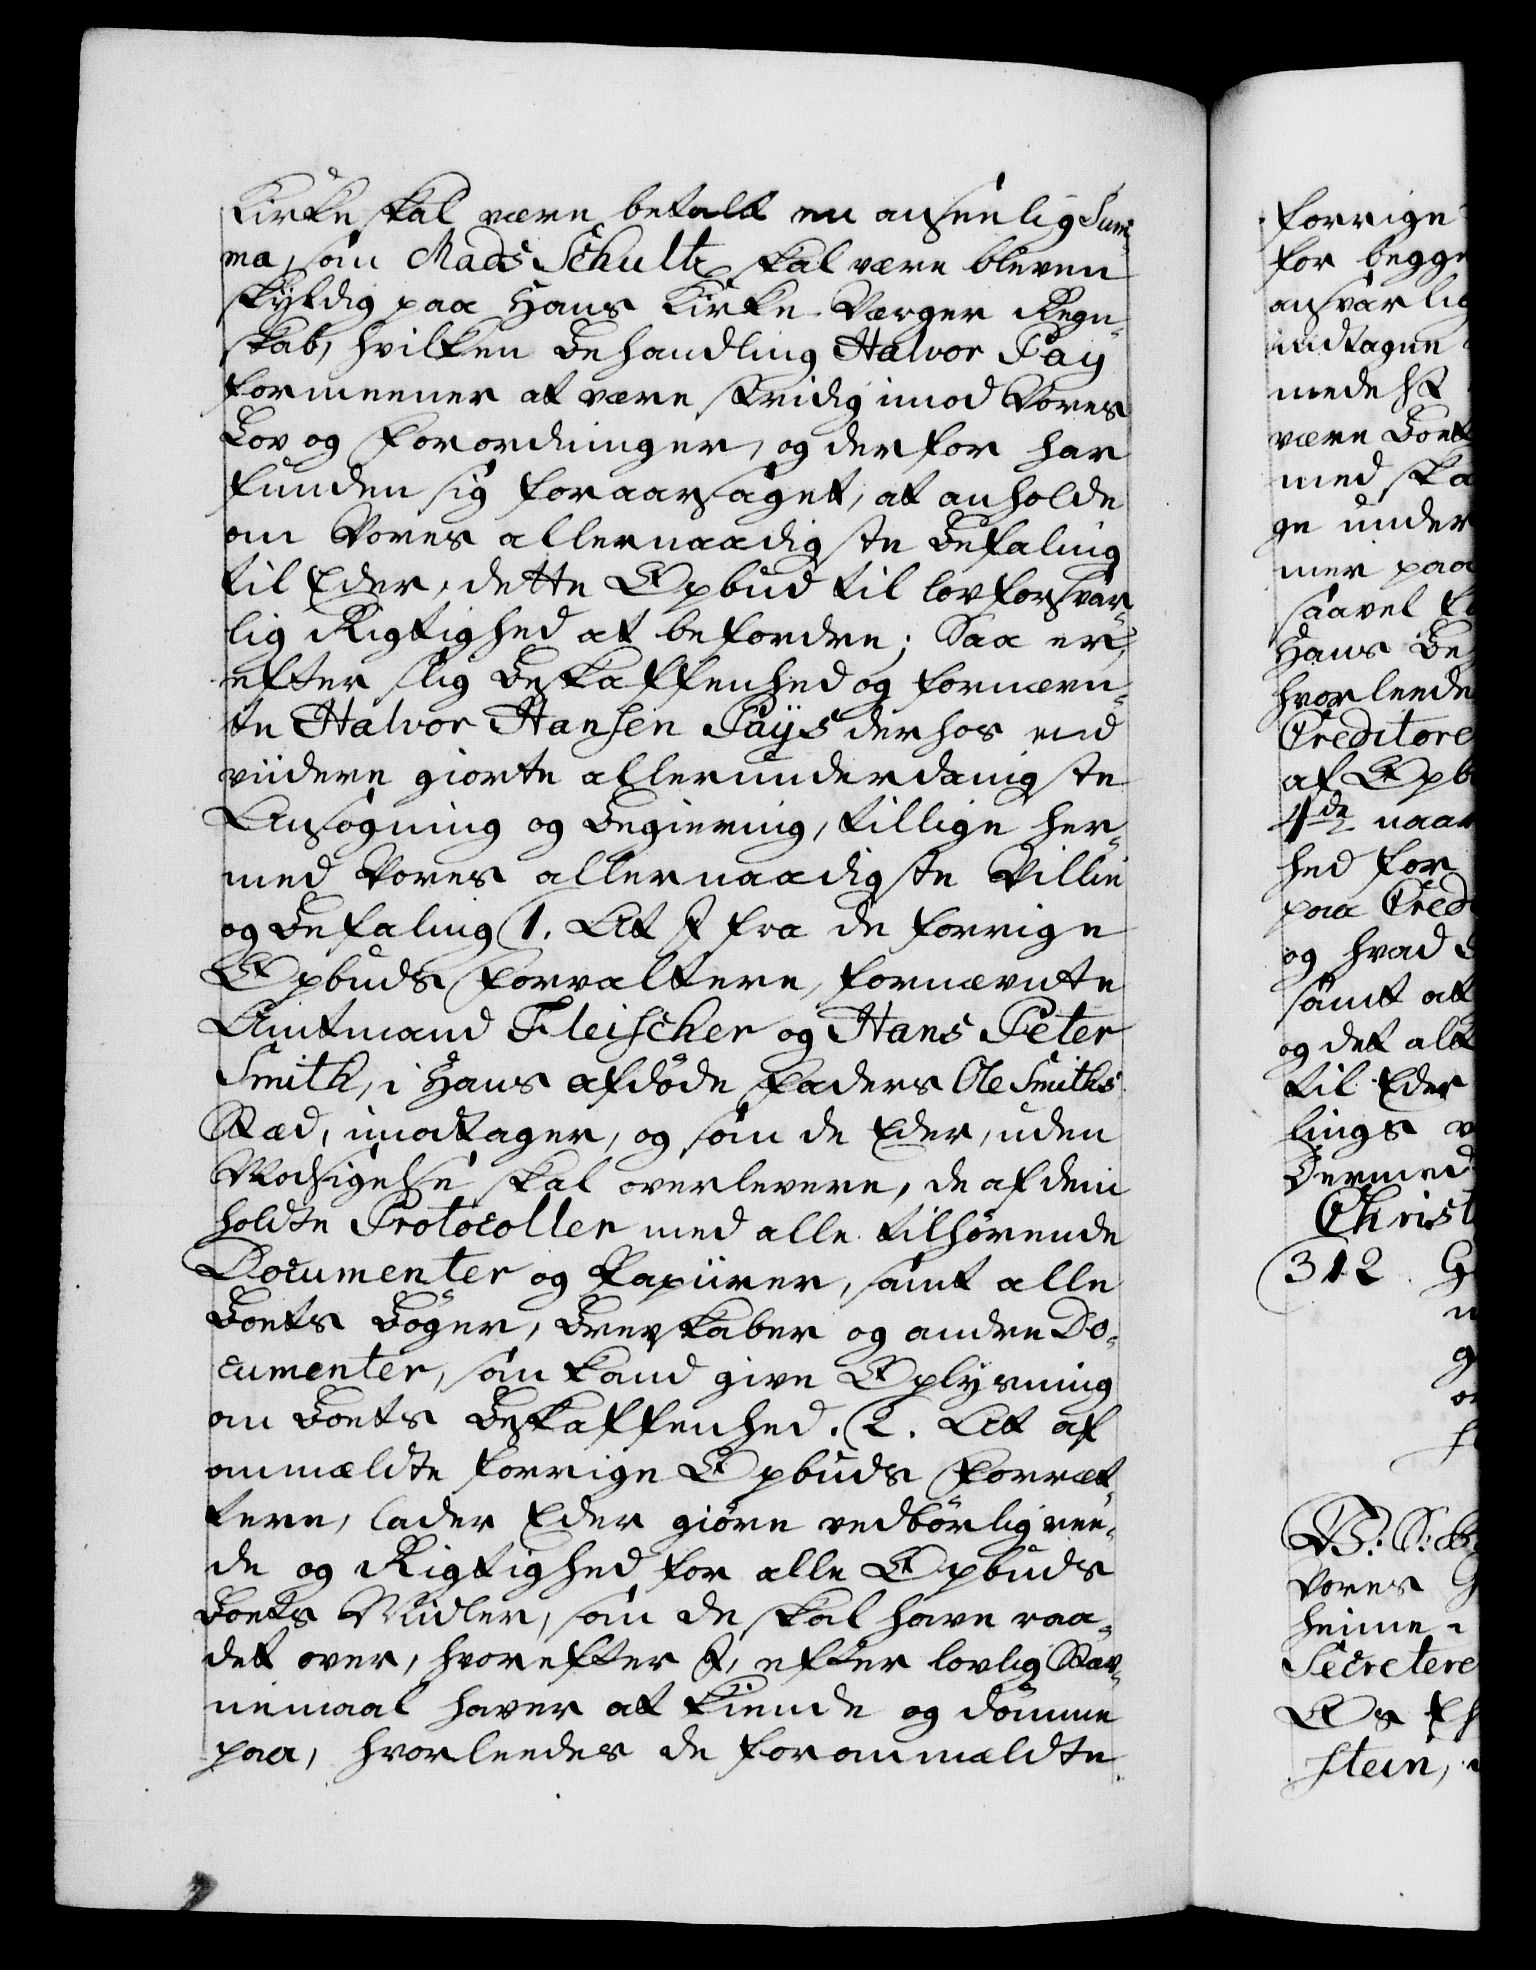 Kirke skal være betalt en anseelig Sum¬
ma, som Mads Schultz skal være bleven
skyldig paa Hans Kirke-Værger Regn¬
skab, hvilken Behandling Halvor Pay
formeener at være stridig imod Vores
Lov og Forordninger, og derfor har
funden sig foraarsaget, at anholde
om Vores allernaadigste Befaling
til Eder, dette Opbud til lovforsvar¬
lig Rigtighed at befordre; Saa er,
efter slig Beskaffenhed og fornævn¬
te Halvor Hansen Paÿs derhos end
viidere giorte allerunderdanigste
Ansøgning og Begiering, tillige her¬
med Vores allernaadigste Villie
og Befaling 1. At I fra de forrige
Opbuds Forvaltere, fornævnte
Amtmand Fleischer og Hans Peter
Smith, i Hans afdöde Faders Ole Smiths
Stæd, imodtager, og som de Eder, uden
Modsigelse skal overlevere, de af dem
holdte Protocoller med alle tilhørende
Documenter og Papiirer, samt alle
Boets Bøger, Brevskaber og andre Do¬
cumenter, som kand give Oplysning
om Boets Beskaffenhed. 2. At af
anmældte forrige Opbuds Forvæl¬
tere, lader Eder giöre vedbörlig ree¬
de og Rigtighed for alle Opbuds
Boets Midler, som de skal have raa¬
det over, hvorefter I, efter lovlig Stev¬
nemaal haver at kiende og dömme
paa, hvorleedes de foranmældte
forrige
for begge
ansvarlig
indtagne
medelst
være Boet
med ska
ge under
mer paa
saavel fo
Hans Be
hvorleede
Creditore
af Opb
4de naar
hed for
paa Cred
og hvad
samt at
og det alt
til Eder
lings v
Dermed
Christ
312. G
Vores G
heime-
Secretere
Os Eh
stein,